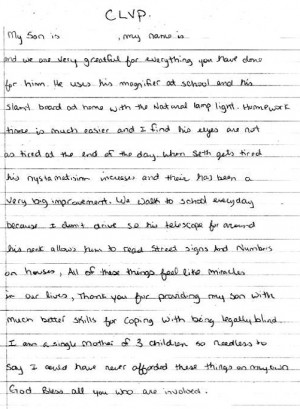 CLVP.
My Son is , my name is
and we are very greatfull for everything you have done
for himm. He uses his magnifier at school and his
slant board at home with the Natural lamp light. Homework
time is much easier and I find his eyes are not
as tired at the end of the day. When Seth gets tired
his nystamatisim increases and their has been a
very big improvement. We walk to school everyday
because I don't drive so his telescope for around
his neck allows him to read Street signs And Numbers
on houses, All of these things feel like miracles
in our lives, Thank you for providing my son with
much better skills for coping with being legally blind.
I am a single mother of 3 children so needless to
say I could have never afforded these things on my own
God Bless all you who are involved.